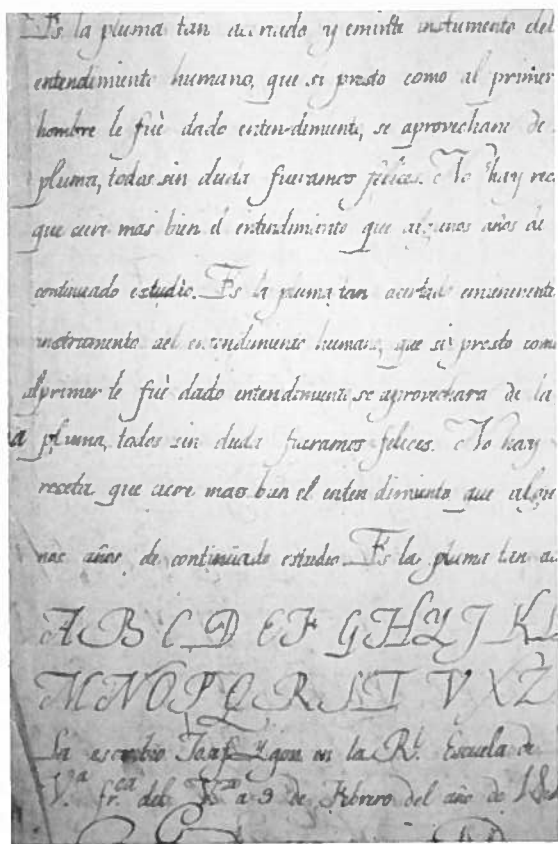 Es la pluma tan acertado y eminẽte instumento del
entendimiento humano, que si presto como al primer
hombre le fuè dado enten-dimiento, se aprovechara de
pluma, todos sin duda fueramos felices. No hay rec
que cure mas bien el entendimiento que algunos años de
continuado estudio. Es la pluma tan acertado
instrumento del entendimiento humano, que si presto como
al primer le fuè dado entendimiento se aprovechara de la
pluma, todos sin duda fueramos felices. No hay
receta que cure mas bien el enten dimiento que algu
nos años de continuado estudio. Es la pluma tan ac
A B C D E F G H Y J K L
M N O P Q R S T V X Z
La escribio en la Rl. Escuela de
V.a fr.ca del a 9 de Febrero del año de